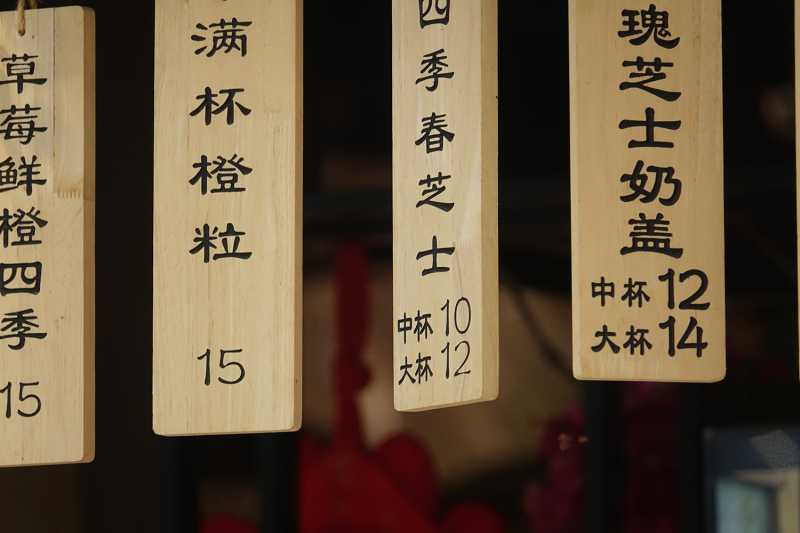 草莓鲜橙四季
15
满杯橙粒
15
四季春芝士
中杯 10
大杯 12
瑰芝士奶盖
中杯 12
大杯 14